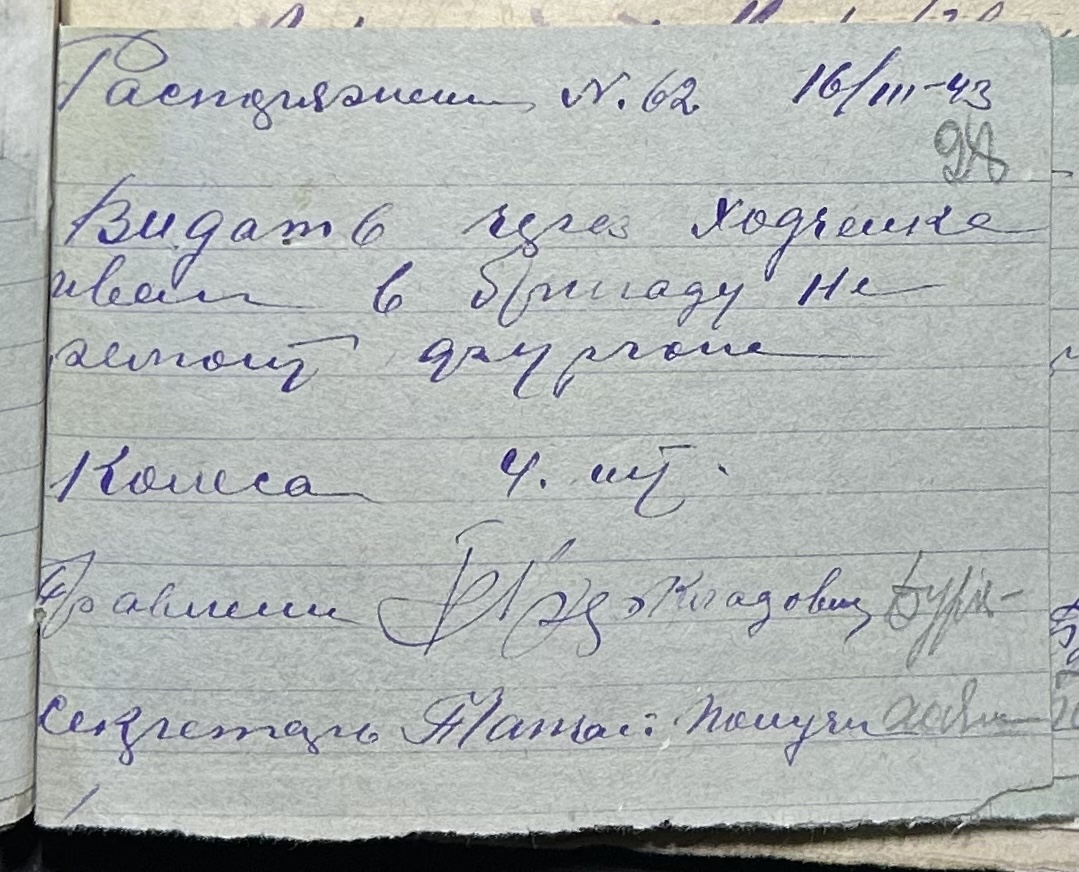 Распоряжение N. 62 16/III-43
98
Видать через Ходченка
иван в бригаду на
ремонт
Колеса 4. шт.
Правлени Кладовщ
Секретарь Получи